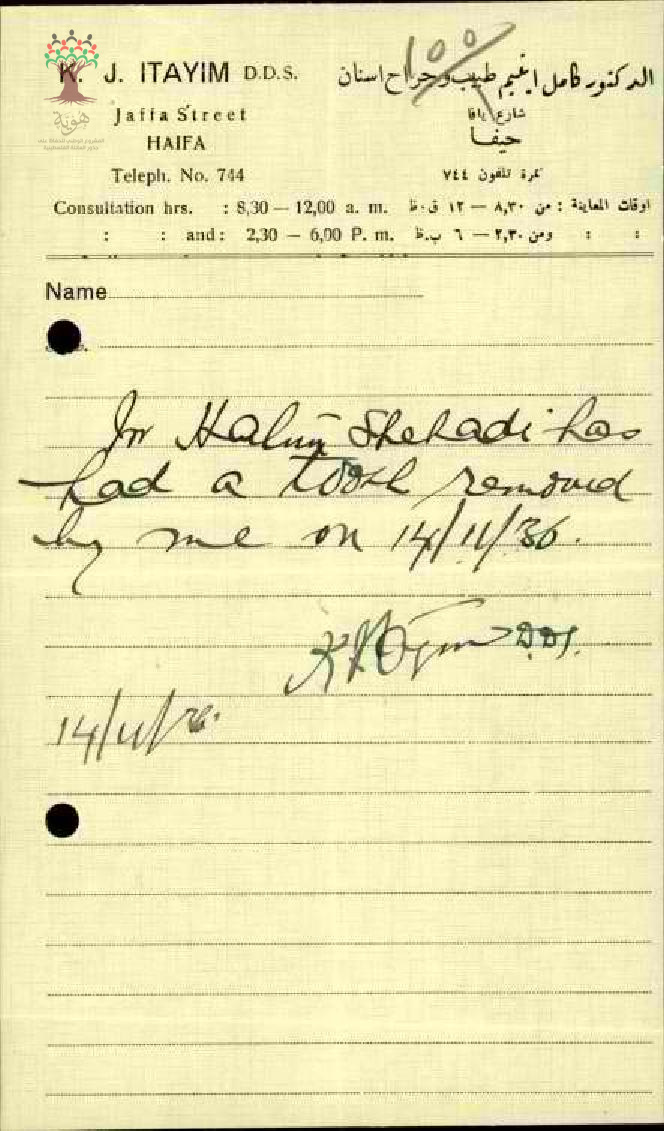 100
K. J. ITAYIM D.D.S.
Jaffa Street
HAIFA
Teleph. No. 744
Consultation hrs. : 8,30 — 12,00 a. m.
: : and: 2,30 — 6,00 P. m.
الدكتور كامل ايتيم طبيب وجراح اسنان
شارع يافا
حيفا
نمرة تلفون ٧٤٤
اوقات المعاينة : من ٨,٣٠ — ١٢ ق.ظ
: : ومن ٢,٣٠ — ٦ ب.ظ
هوية
Name
Mr Halim Shehadi has
had a tooth removed
by me on 14/11/36.
D.D.S.
14/11/36.